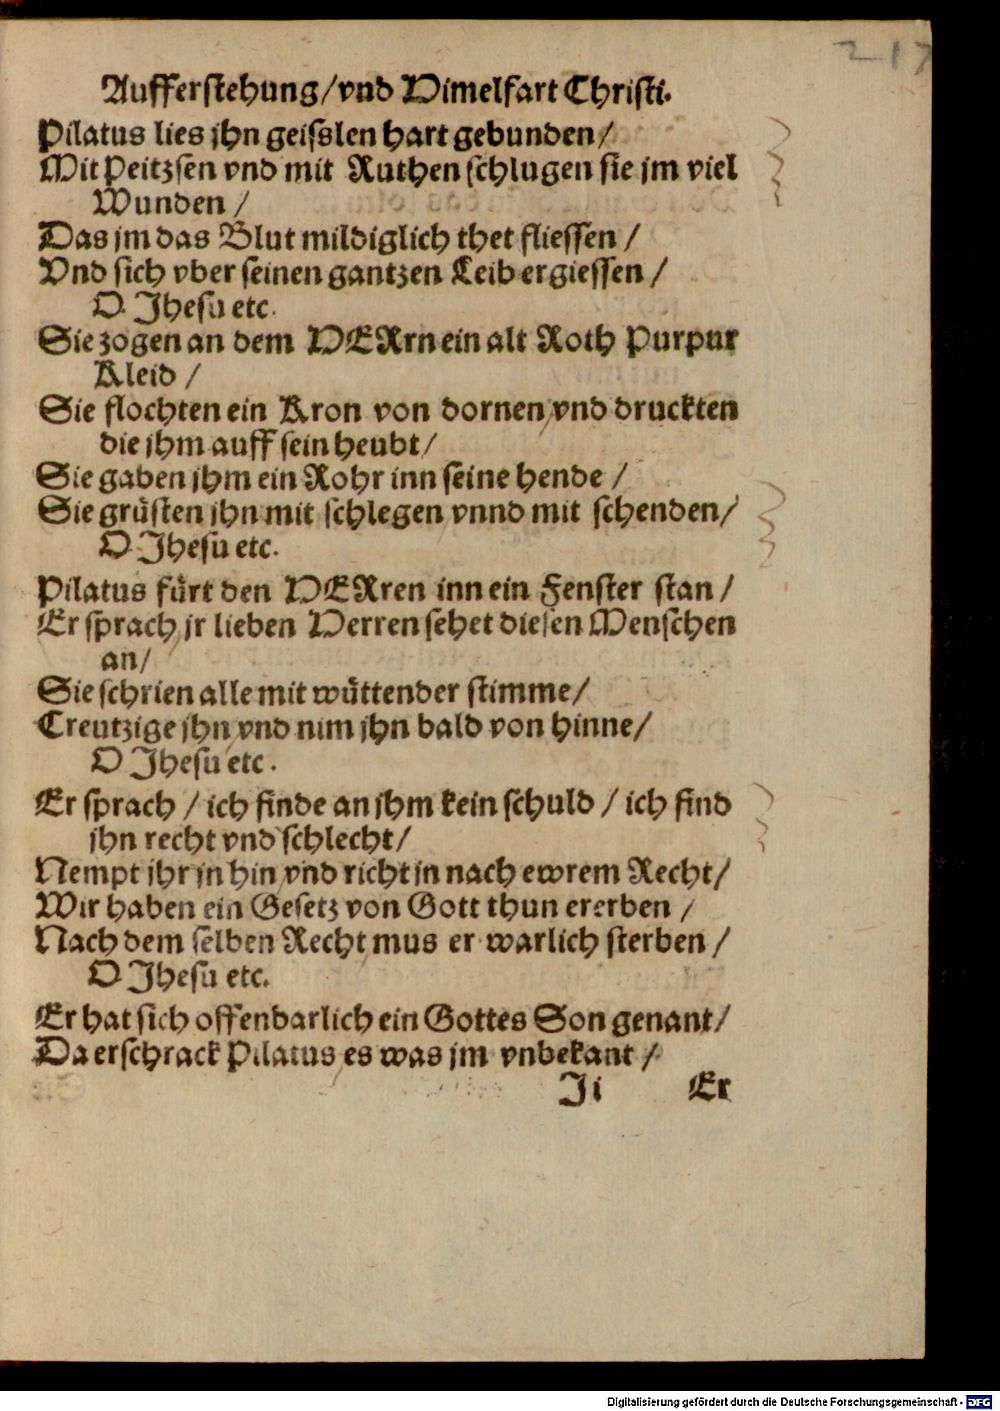 217
Aufferstehung/vnd Himelfart Christi.
Pilatus lies jhn geisslen hart gebunden/
Mit Peitzsen vnd mit Ruthen schlugen sie jm viel
Wunden /
Das jm das Blut mildiglich thet fliessen /
Vnd sich vber seinen gantzen Leib ergiessen /
O Jhesu etc.
Sie zogen an dem HERrn ein alt Roth Purpur
Kleid /
Sie flochten ein Kron von dornen/vnd druckten
die jhm auff sein heubt/
Sie gaben jhm ein Rohr inn seine hende /
Sie grüsten jhn mit schlegen vnnd mit schenden/
O Jhesu etc.
Pilatus fürt den HERren inn ein Fenster stan /
Er sprach/jr lieben Herren sehet diesen Menschen
an/
Sie schrien alle mit wüttender stimme/
Creutzige jhn/vnd nim jhn bald von hinne/
O Jhesu etc.
Er sprach / ich finde an jhm kein schuld / ich find
jhn recht vnd schlecht/
Nempt jhr jn hin/vnd richt jn nach ewrem Recht/
Wir haben ein Gesetz von Gott thun ererben /
Nach dem selben Recht/mus er warlich sterben /
O Jhesu etc.
Er hat sich offenbarlich ein Gottes Son genant/
Da erschrack Pilatus/es was jm vnbekant /
Ji Er
Digitalisierung gefördert durch die Deutsche Forschungsgemeinschaft - DFG